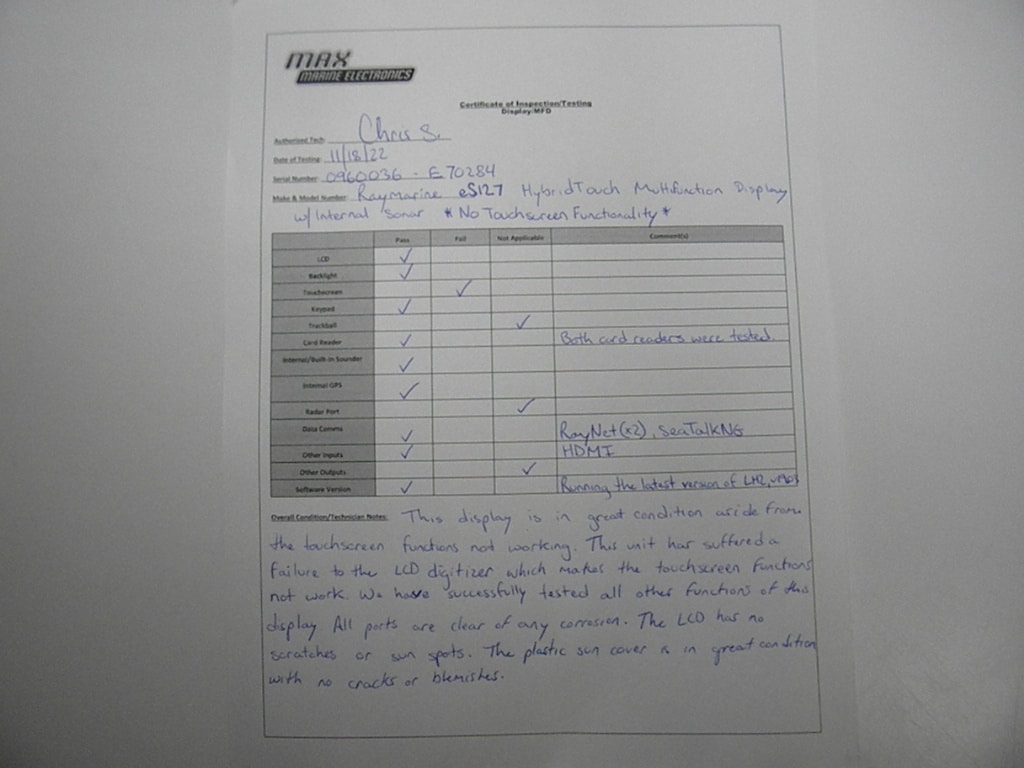 MAX
MARINE ELECTRONICS
Certificate of Inspection/Testing
Display/MFD
Authorized Tech: Chris S.
Date of Testing: 11/18/22
Serial Number: 0960036 - E70284
Make & Model Number: Raymarine eS127 HybridTouch Multifunction Display
w/ Internal Sonar * No Touchscreen Functionality *
Pass Fail Not Applicable Comment(s)
LCD ✓
Backlight ✓
Touchscreen ✓
Keypad ✓
Trackball ✓
Card Reader ✓ Both card readers were tested.
Internal/Built-in Sounder ✓
Internal GPS ✓
Radar Port ✓
Data Comms ✓ RayNet (x2), SeaTalkNG
Other Inputs ✓ HDMI
Other Outputs ✓
Software Version ✓ Running the latest version of LH2,
Overall Condition/Technician Notes: This display is in great condition aside from
the touchscreen functions not working. This unit has suffered a
failure to the LCD digitizer which makes the touchscreen functions
not work. We have successfully tested all other functions of this
display. All ports are clear of any corrosion. The LCD has no
scratches or sun spots. The plastic sun cover is in great condition
with no cracks or blemishes.